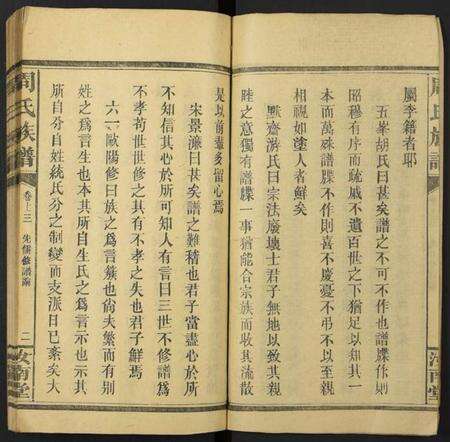 屬李籍者耶
五峯胡氏曰甚矣譜之不可不作也譜牒作則
昭穆有序而疏戚不遺百世之下猶足以知其一
本而萬殊譜牒不作則喜不慶憂不弔不以至親
相視如塗人者鮮矣
默齋游氏曰宗法廢壞士君子無地以致其親
睦之意獨有譜牒一事猶能合宗族而收其流散
是以前輩多留心焉
宋景濂曰甚矣譜之難稽也君子當盡心於所
不知信其心於所可知人有言曰三世不修譜為
不孝苟世世修之其有不孝之失也君子鮮焉
六一歐陽修曰族之為言簇也尚夫繁而有别
姓之為言生也本其所自生氏之為言示也示其
所自分自姓統氏分之制變而支派日已紊矣大
周氏族譜
卷十三 先儒修譜論
二
汝南堂
周氏族譜
汝南堂